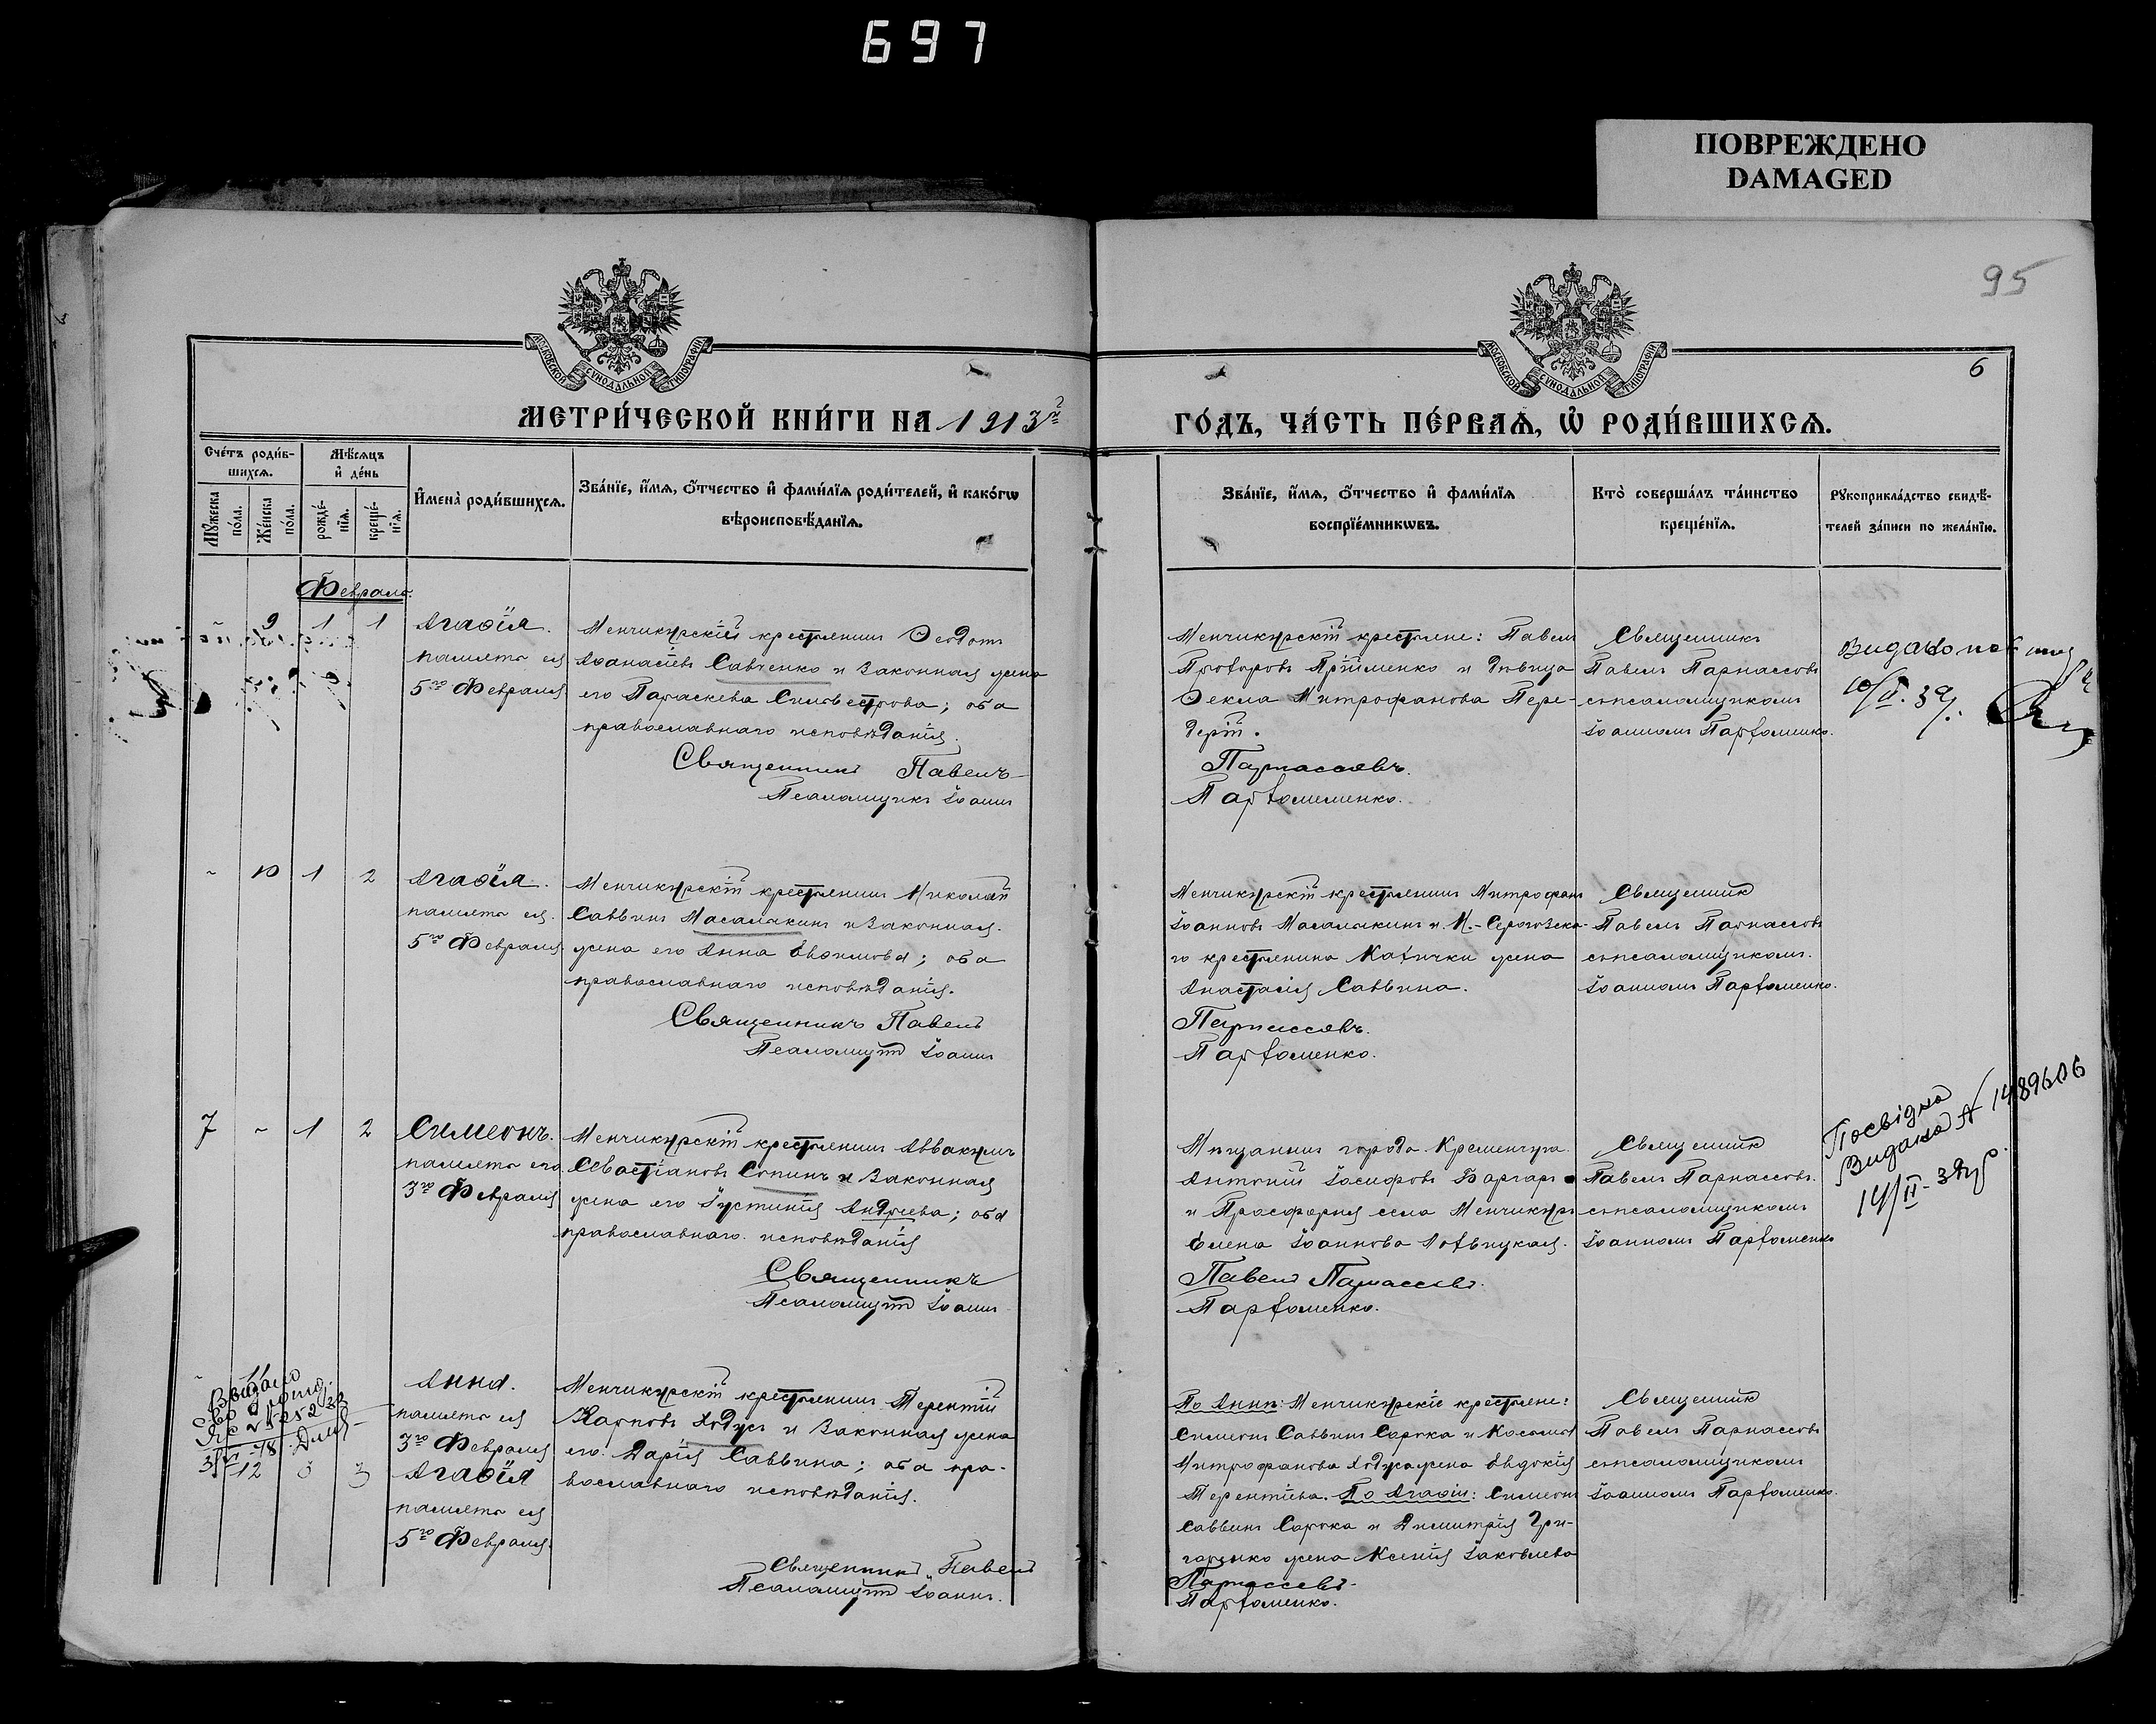 697
ПОВРЕЖДЕНО
DAMAGED
95
6
МОСКОВСКОЙ СѴНОДАЛЬНОЙ ТИПОГРАФІИ
МОСКОВСКОЙ СѴНОДАЛЬНОЙ ТИПОГРАФІИ
МЕТРИ́ЧЕСКОЙ КНИ́ГИ НА 1913 г.
ГО́ДЪ, ЧА́СТЬ ПЕ́РВАѦ, Ѽ РОДИ́ВШИХСѦ.
Сче́тъ роди́вшихсѧ.
Мꙋжеска по́ла.
Же́нска по́ла.
Мѣ́сѧцъ и҆ де́нь
рожде́нїѧ.
креще́нїѧ.
И҆мена̀ роди́вшихсѧ.
Зва́нїе, и҆́мѧ, ѻ҆́тчество и҆ фами́лїѧ роди́телей, и҆ како́гѡ
вѣроисповѣ́данїѧ.
Зва́нїе, и҆́мѧ, ѻ҆́тчество и҆ фами́лїѧ
воспрїе́мникѡвъ.
Кто̀ соверша́лъ та́инство
креще́нїѧ.
Рꙋкоприкла́дство свидѣ́-
телей за́писи по жела́нїю.
Февраль.
9 1 1
Агаѳія.
память ея
5го Февраля
Менчикурскій крестьянинъ Ѳеодотъ
Аѳанасіевъ Савченко и законная жена
его Параскева Силвестрова; оба
православнаго исповѣданія.
Священникъ Павелъ
Псаломщикъ Іоаннъ
Менчикурскіе крестьяне: Павелъ
Прохоровъ Пріименко и дѣвица
Ѳекла Митрофанова Пере-
дерій.
Парнассовъ.
Парфоменко.
Священникъ
Павелъ Парнассовъ
съ псаломщикомъ
Іоанномъ Парфоменко.
Видано
10/II. 39
~ 10 1 2
Агаѳія.
память ея.
5го Февраля
Менчикурскій крестьянинъ Николай
Саввинъ Масалыкинъ и законная
жена его Анна Евѳимова; оба
православнаго исповѣданія.
Священникъ Павелъ
Псаломщикъ Іоаннъ
Менчикурскій крестьянинъ Митрофанъ
Іоанновъ Масалыкинъ и Н.-Серогозска-
го крестьянина жена
Анастасія Саввина.
Парнассовъ.
Парфоменко.
Священникъ
Павелъ Парнассовъ
съ псаломщикомъ.
Іоанномъ Парфоменко.
7 ~ 1 2
Симеонъ.
память его
3го Февраля
Менчикурскій крестьянинъ Аввакумъ
Севастіановъ Сопинъ и законная
жена его Іустинія Андреева; оба
православнаго исповѣданія
Священникъ
Псаломщикъ Іоаннъ
Мѣщанинъ города Кременчуга
Антоній Іосифовъ
и Просфорня села Менчикуръ
Елена Іоаннова
Павелъ Парнассовъ.
Парфоменко.
Священникъ
Павелъ Парнассовъ.
съ псаломщикомъ
Іоанномъ Парфоменко
Посвідка
Видана № 1489606
14/II-39р.
~ 11
Видано
Анна.
память ея
3го Февраля
12 3 3
Агаѳія
память ея
5го Февраля.
Менчикурскій крестьянинъ Терентій
Карповъ Ходусъ и законная жена
его Дарія Саввина; оба пра-
вославнаго исповѣданія.
Священникъ Павелъ
Псаломщикъ Іоаннъ.
По Аннѣ: Менчикурскіе крестьяне:
Симеонъ Саввинъ Сорока и Космы
Митрофанова Ходуса жена Евдокія
Терентіева. По Агаѳіи: Симеонъ
Саввинъ Сорока и Димитрія Гри-
горенко жена Ксенія Іаковлева
Парнассовъ.
Парфоменко.
Священникъ
Павелъ Парнассовъ
съ псаломщикомъ
Іоанномъ Парфоменко.